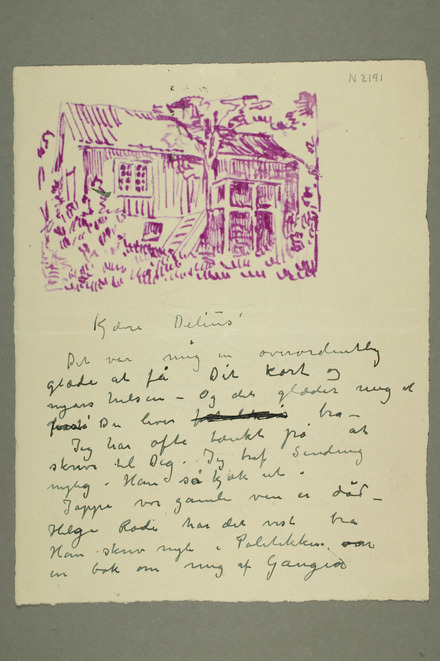 N 2191
Kjære Delius'
Det var mig en overordentlig
glæde at få Dit kort og
nyårs hilsen – Og det glæder mig at
Du lever bra –
Jeg har ofte tænkt på at
skrive til Dig. Jeg traf Sinding
nylig. Han så kjæk ut –
Jappe vor gamle ven er død –
Helge Rode har det vist bra
Han skrev nylig i Politikken
en bok om mig af Gaugin